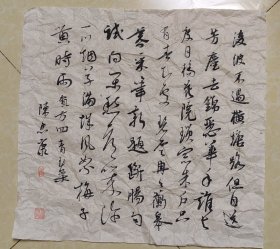 凌波不過橫塘路但目送
芳塵去錦瑟華年誰與
度月橋花院瑣窗朱戶只
有春知處碧雲冉冉蘅皋
暮彩筆新題斷腸句
試問閑愁都幾許
一川烟草滿城風絮梅子
黃時雨 賀方回青玉案
陳